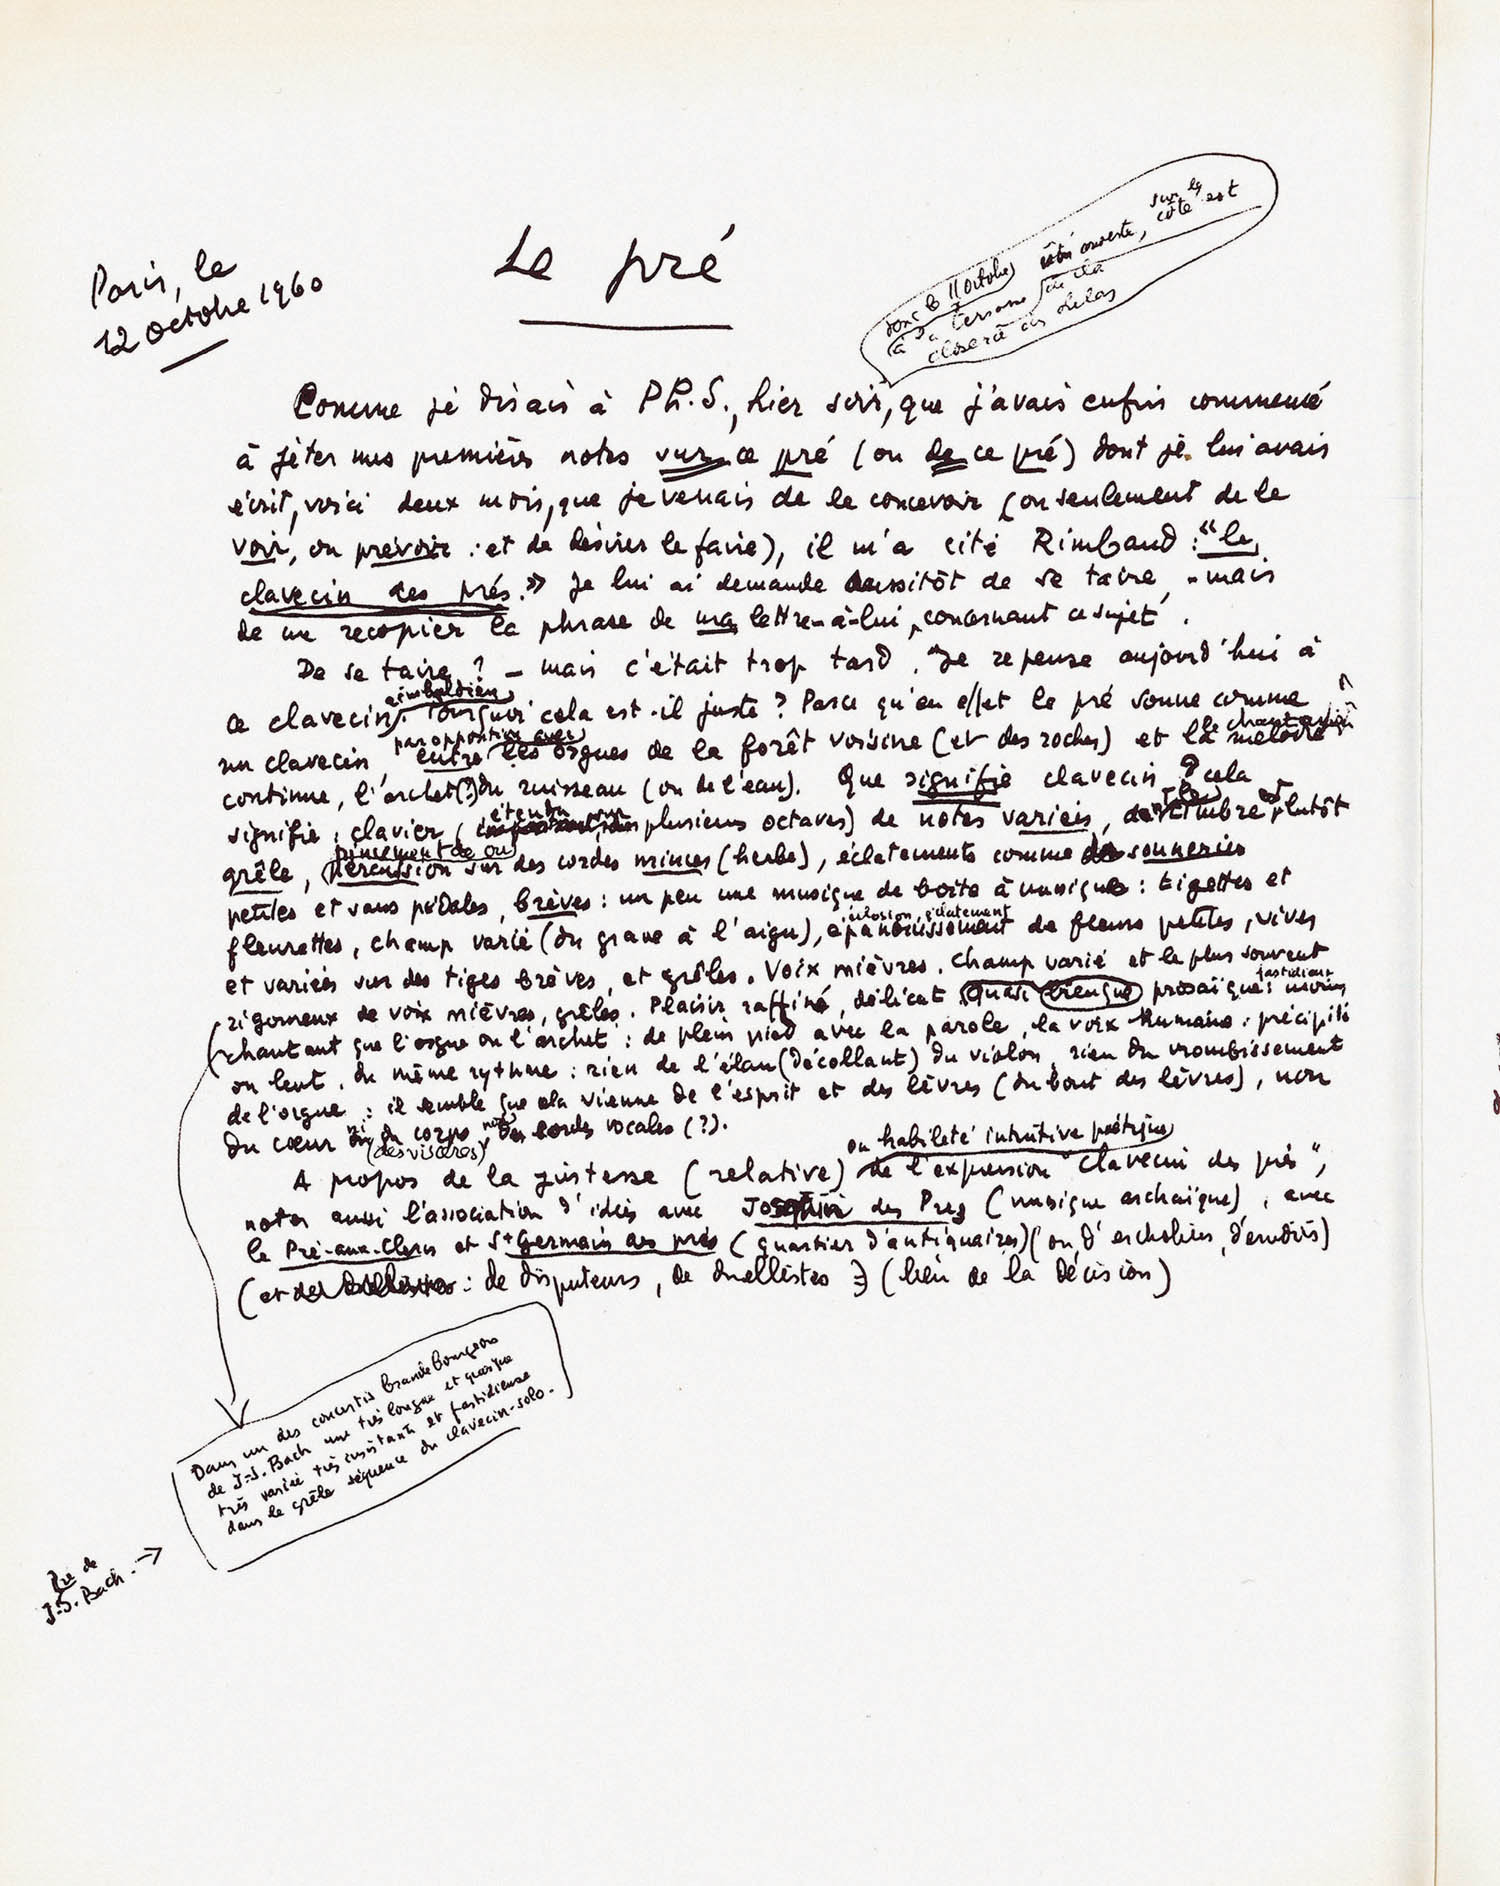 Paris, le
12 octobre 1960
Le pré
donc le 11 octobre
à la terrasse de la
closerie des Lilas
ouverte, sur le
côté est
Comme je disais à Ph.S., hier soir, que j'avais enfin commencé
à jeter mes premières notes sur ce pré (ou de ce pré) dont je lui avais
écrit, voici deux mois, que je venais de le concevoir (ou seulement de le
voir, ou prévoir : et de désirer le faire), il m'a cité Rimbaud : "le
clavecin des prés." Je lui ai demandé aussitôt de se taire, - mais
de me recopier la phrase de ma lettre-à-lui, concernant ce sujet.
De se taire ? - mais c'était trop tard. Je repense aujourd'hui à
rimbaldien
ce clavecin. Pourquoi cela est-il juste ? Parce qu'en effet le pré sonne comme
par opposition avec
un clavecin, entre les orgues de la forêt voisine (et des roches) et la mélodie
continue, l'archet(?) du ruisseau (ou de l'eau). Que signifie clavecin ? cela
étendu sur
signifie : clavier (plusieurs octaves) de notes variées, de timbre plutôt
pincement de ou
grêle, percussion sur des cordes minces (herbe), éclatements comme de sonneries
petites et sans pédales, brèves : un peu une musique de boîte à musique : tigettes et
éclosion, éclatement
fleurettes, champ varié (du grave à l'aigu), épanouissement de fleurs petites, vives
et variées sur des tiges brèves, et grêles. Voix mièvres. Champ varié et le plus souvent
fastidieux
rigoureux de voix mièvres, grêles. Plaisir raffiné, délicat quasi prosaïque : moins
chantant que l'orgue ou l'archet : de plein pied avec la parole, la voix humaine : précipité
ou lent, du même rythme : rien de l'élan (décollant) du violon, rien du vrombissement
de l'orgue : il semble que cela vienne de l'esprit et des lèvres (du bout des lèvres), non
du cœur ni du corps non des cordes vocales (?).
(des viscères)
ou habileté intuitive poétique
A propos de la justesse (relative) de l'expression "clavecin des prés",
noter aussi l'association d'idées avec Josquin des Prés (musique archaïque), avec
le Pré-aux-Clercs et St Germain des prés (quartier d'antiquaires) (ou d'escholiers, d'érudits)
(et de duellistes : de disputeurs, de duellistes) (lieu de la décision)
Dans un des concertis brandebourgeois
de J-S. Bach une très longue et quoique
très variée très insistante et fastidieuse
dans le grêle séquence du clavecin-solo.
de
J-S. Bach. →